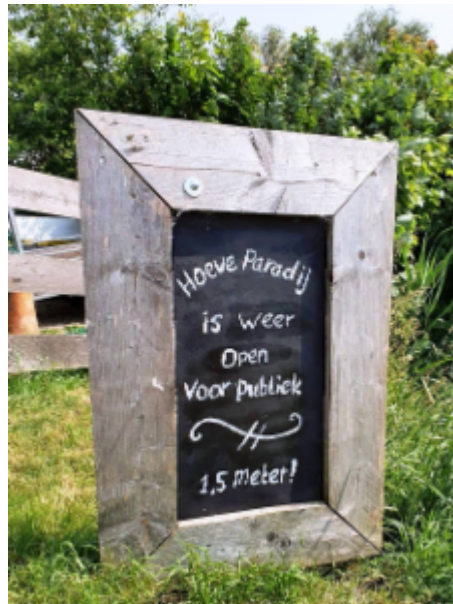 Hoeve Paradij
is weer
open
voor publiek
1,5 Meter!